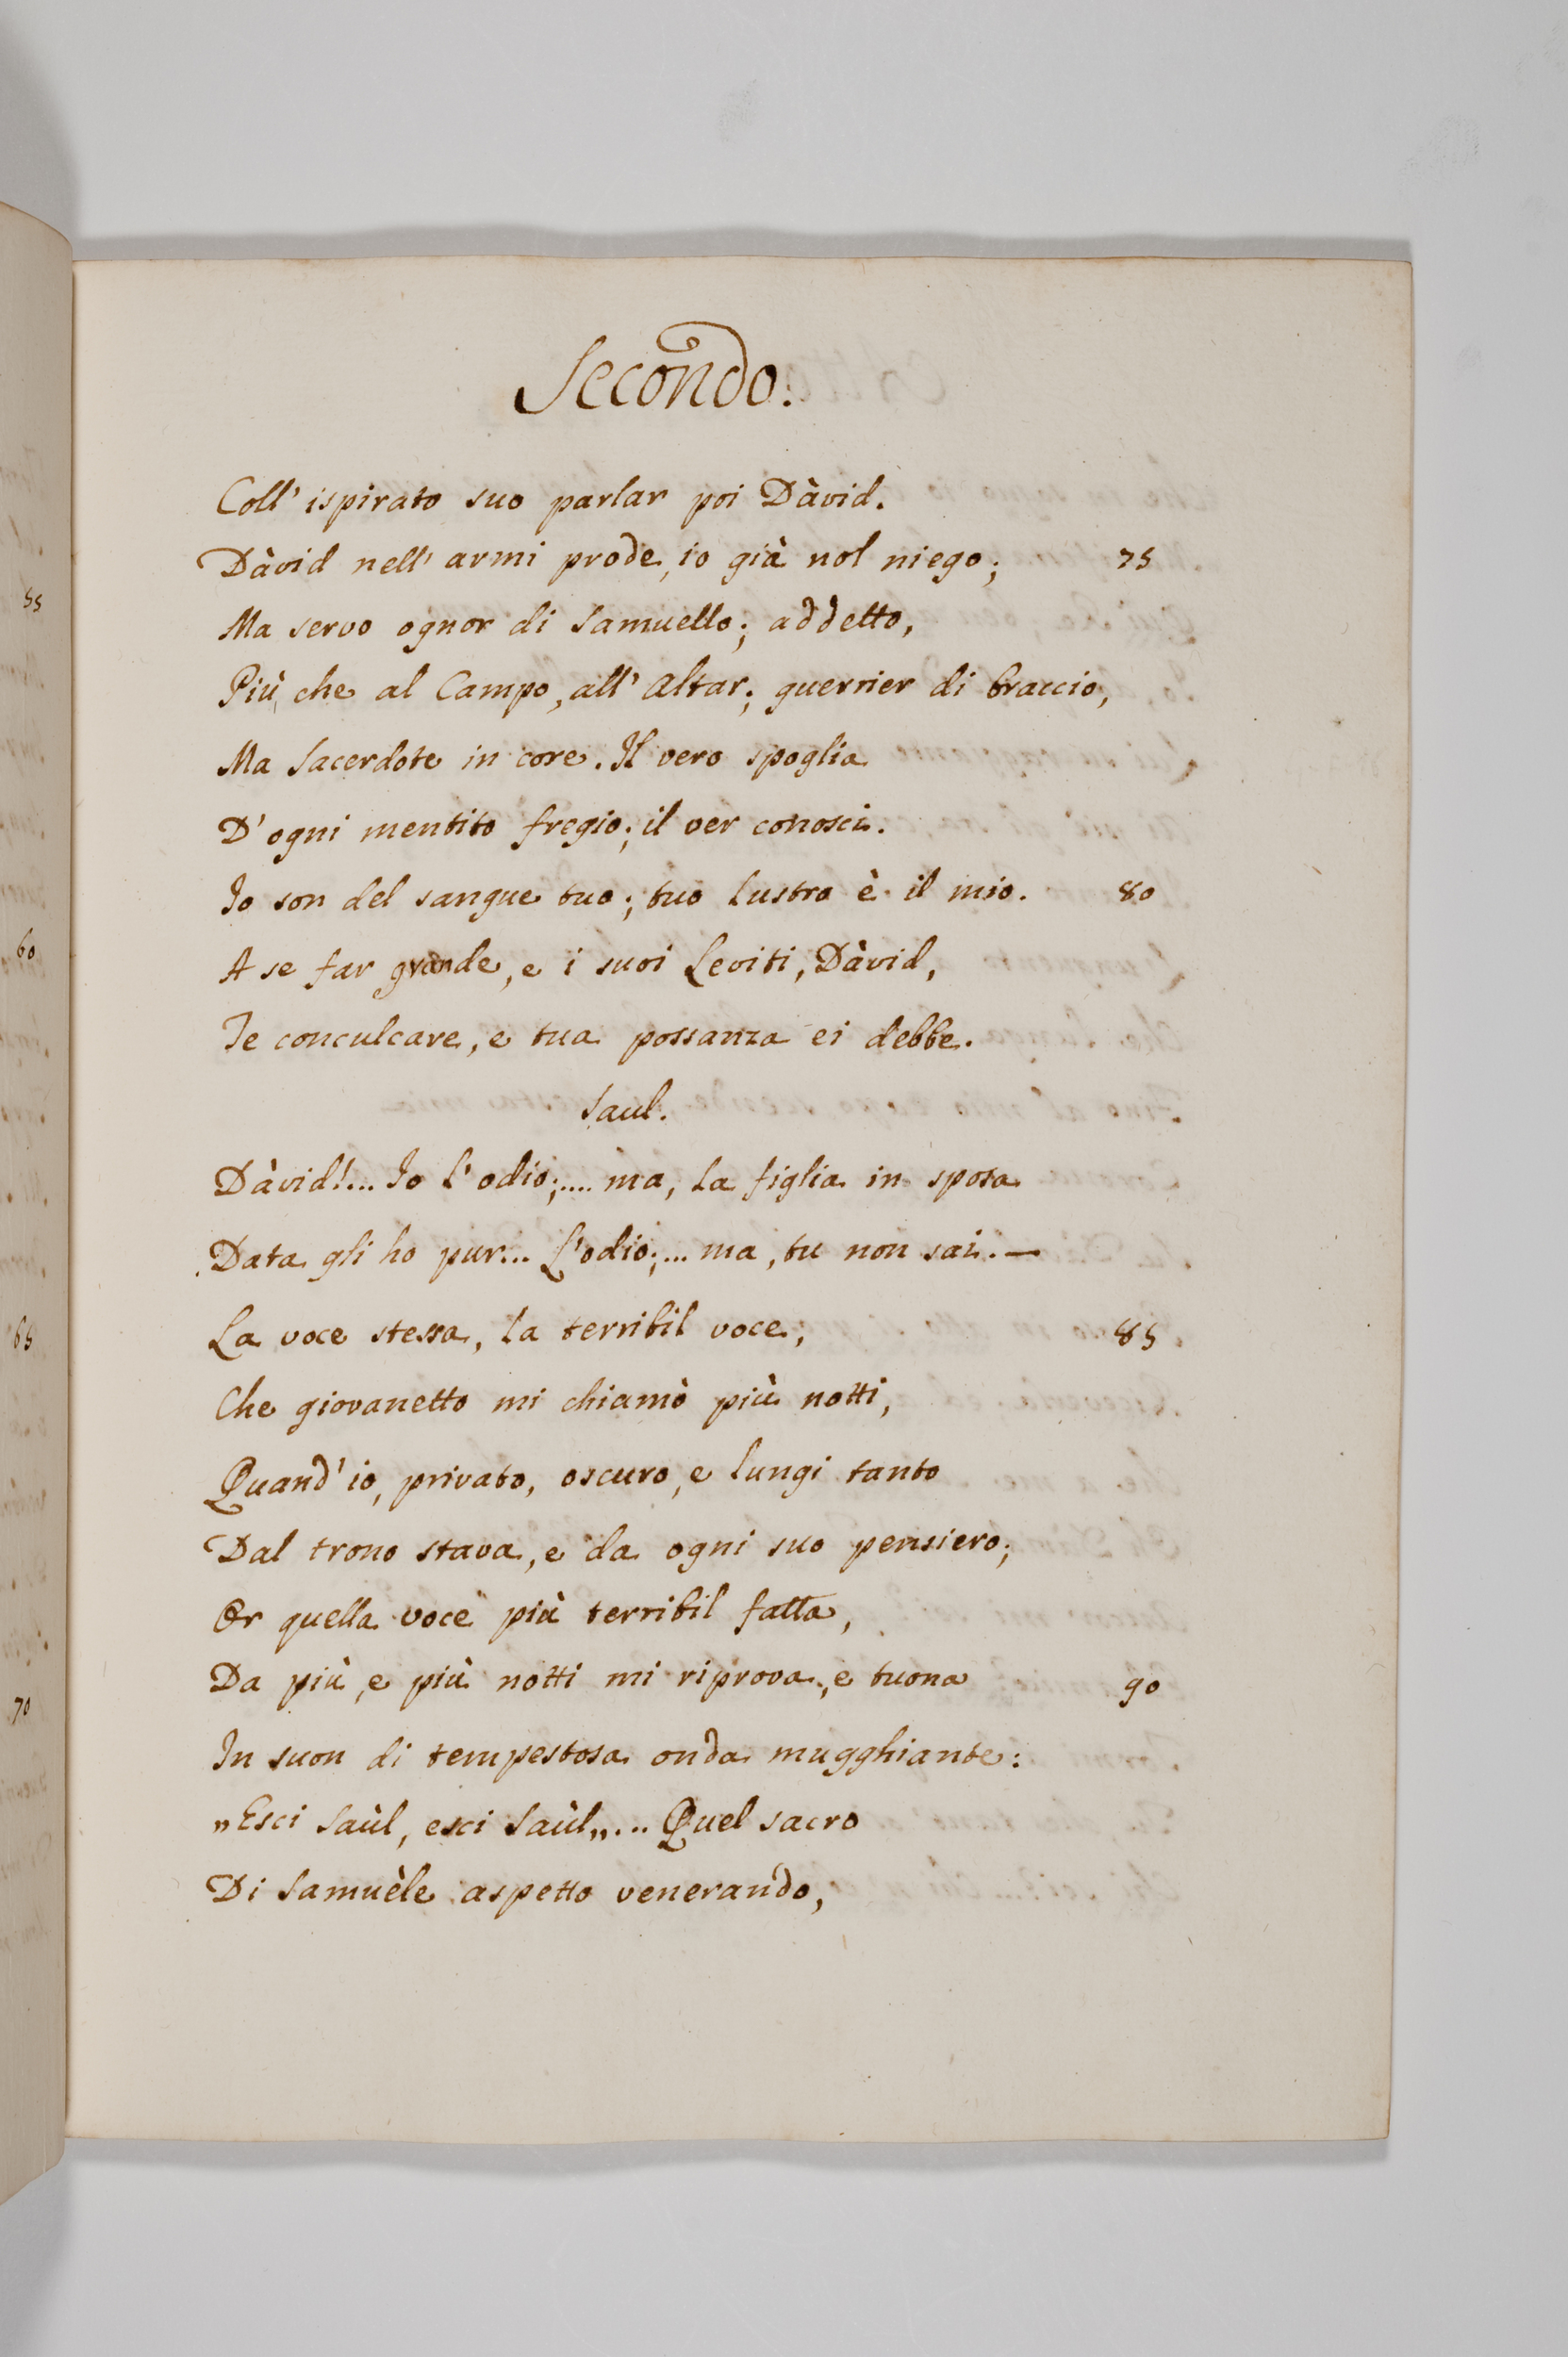 Secondo.
Coll' ispirato suo parlar poi Dàvid.
Dàvid nell' armi prode, io già nol niego; 75
Ma servo ognor di Samuello; addetto,
Più, che al Campo, all' Altar; guerrier di braccio,
Ma Sacerdote in core. Il vero spoglia
D' ogni mentito fregio; il ver conosci.
Io son del sangue tuo; tuo lustro è il mio. 80
A se far grande, e i suoi Leviti, Dàvid,
Te conculcare, e tua possanza ei debbe.
Saul.
Dàvid!... Io l' odio;.... ma, la figlia in sposa
Data gli ho pur... L'odio;... ma, tu non sai. —
La voce stessa, la terribil voce, 85
Che giovanetto mi chiamò più notti,
Quand' io, privato, oscuro, e lungi tanto
Dal trono stava, e da ogni suo pensiero;
Or quella voce più terribil fatta,
Da più, e più notti mi riprova, e tuona 90
In suon di tempestosa onda mugghiante:
„Esci Saùl, esci Saùl„... Quel sacro
Di Samuèle aspetto venerando,
55
60
65
70